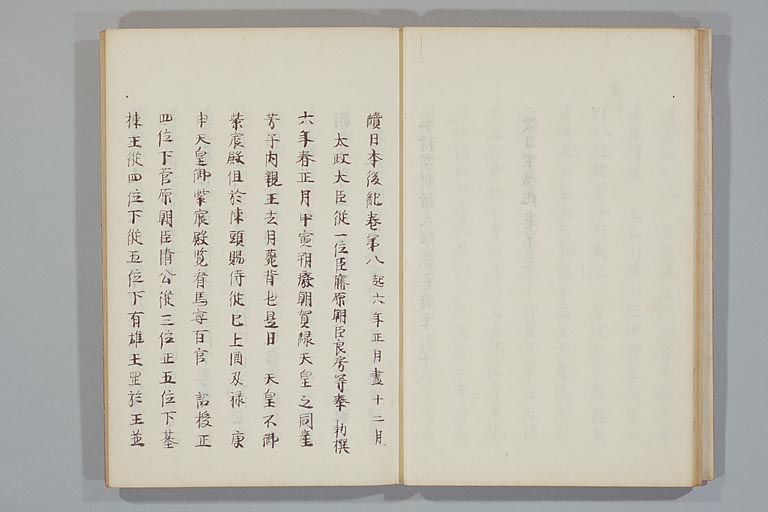 續日本後紀卷第八 起六年正月盡十二月
太政大臣從一位臣藤原朝臣良房等奉 勅撰
六年春正月甲寅朔廢朝賀緣天皇之同產
芳子內親王去月薨背也是日 天皇不御
紫宸殿但於陣頭賜侍從已上酒及祿 庚
申天皇御紫宸殿覧青馬宴百官 詔授正
四位下菅原朝臣清公從三位正五位下基
棟王從四位下從五位下有雄王 於王並